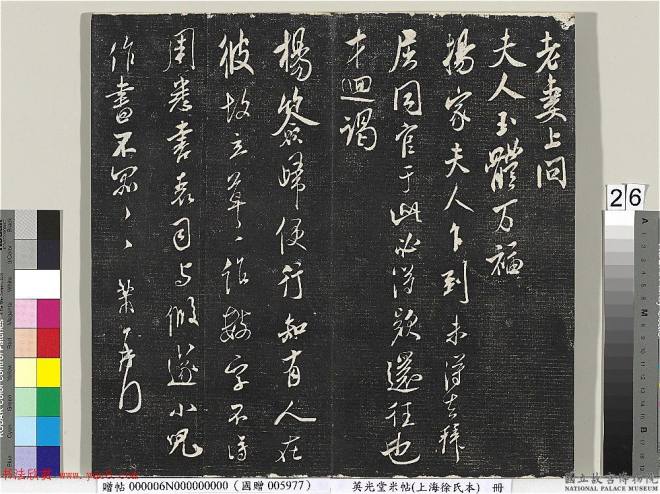 老妻上问
夫人玉體万福
楊家夫人乍到未得去拜
居同官于此必得欵還往也
才迴謁
楊 歸便行知有人在
彼故立草、作數字不得
周悉書表司与修 小兒
作書不罪〻〻 芾頓首
26
贈帖 000006N000000000（國贈 005977）
英光堂米帖(上海徐氏本) 冊
國立故宮博物院
NATIONAL PALACE MUSEUM
书法欣赏